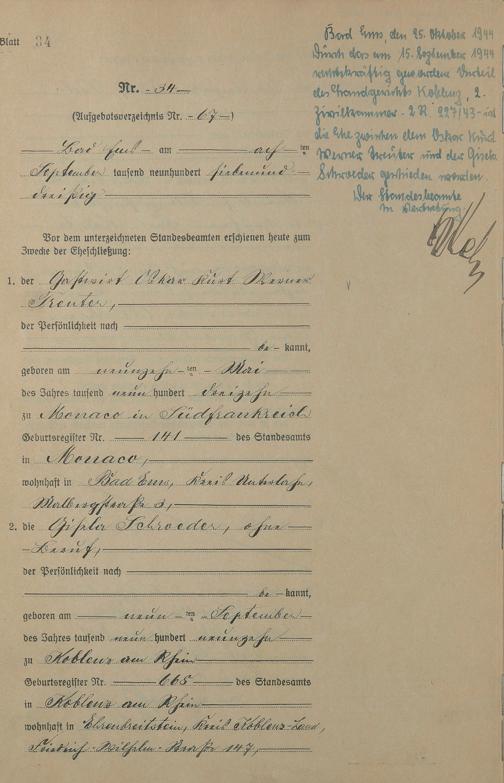 Blatt 34
Nr. 34
(Aufgebotsverzeichnis Nr. 67)
Bad Ems am acht ten
September tausend neunhundert siebenund
dreißig
Vor dem unterzeichneten Standesbeamten erschienen heute zum
Zwecke der Eheschließung:
1. der Gastwirt Oskar Kurt Werner
Treuter,
der Persönlichkeit nach
be kannt,
geboren am neunzehn ten Mai
des Jahres tausend neun hundert dreizehn
zu Monaco in Südfrankreich
Geburtsregister Nr. 141 des Standesamts
in Monaco,
wohnhaft in Bad Ems, Kreis Unterlahn,
Malbergstraße 3,
2. die Gisela Schroeder, ohne
Beruf,
der Persönlichkeit nach
be kannt,
geboren am neun ten September
des Jahres tausend neun hundert neunzehn
zu Koblenz am Rhein
Geburtsregister Nr. 665 des Standesamts
in Koblenz am Rhein
wohnhaft in Ehrenbreitstein, Kreis Koblenz-Land,
Friedrich-Wilhelm-Straße 147,
Bad Ems, den 25. Oktober 1944
Durch das am 15. September 1944
rechtskräftig gewordene Urteil
des Landgerichts Koblenz, 2.
Zivilkammer - 2 R. 227/43 - ist
die Ehe zwischen dem Oskar Kurt
Werner Treuter und der Gisela
Schroeder geschieden worden.
Der Standesbeamte
In Vertretung: